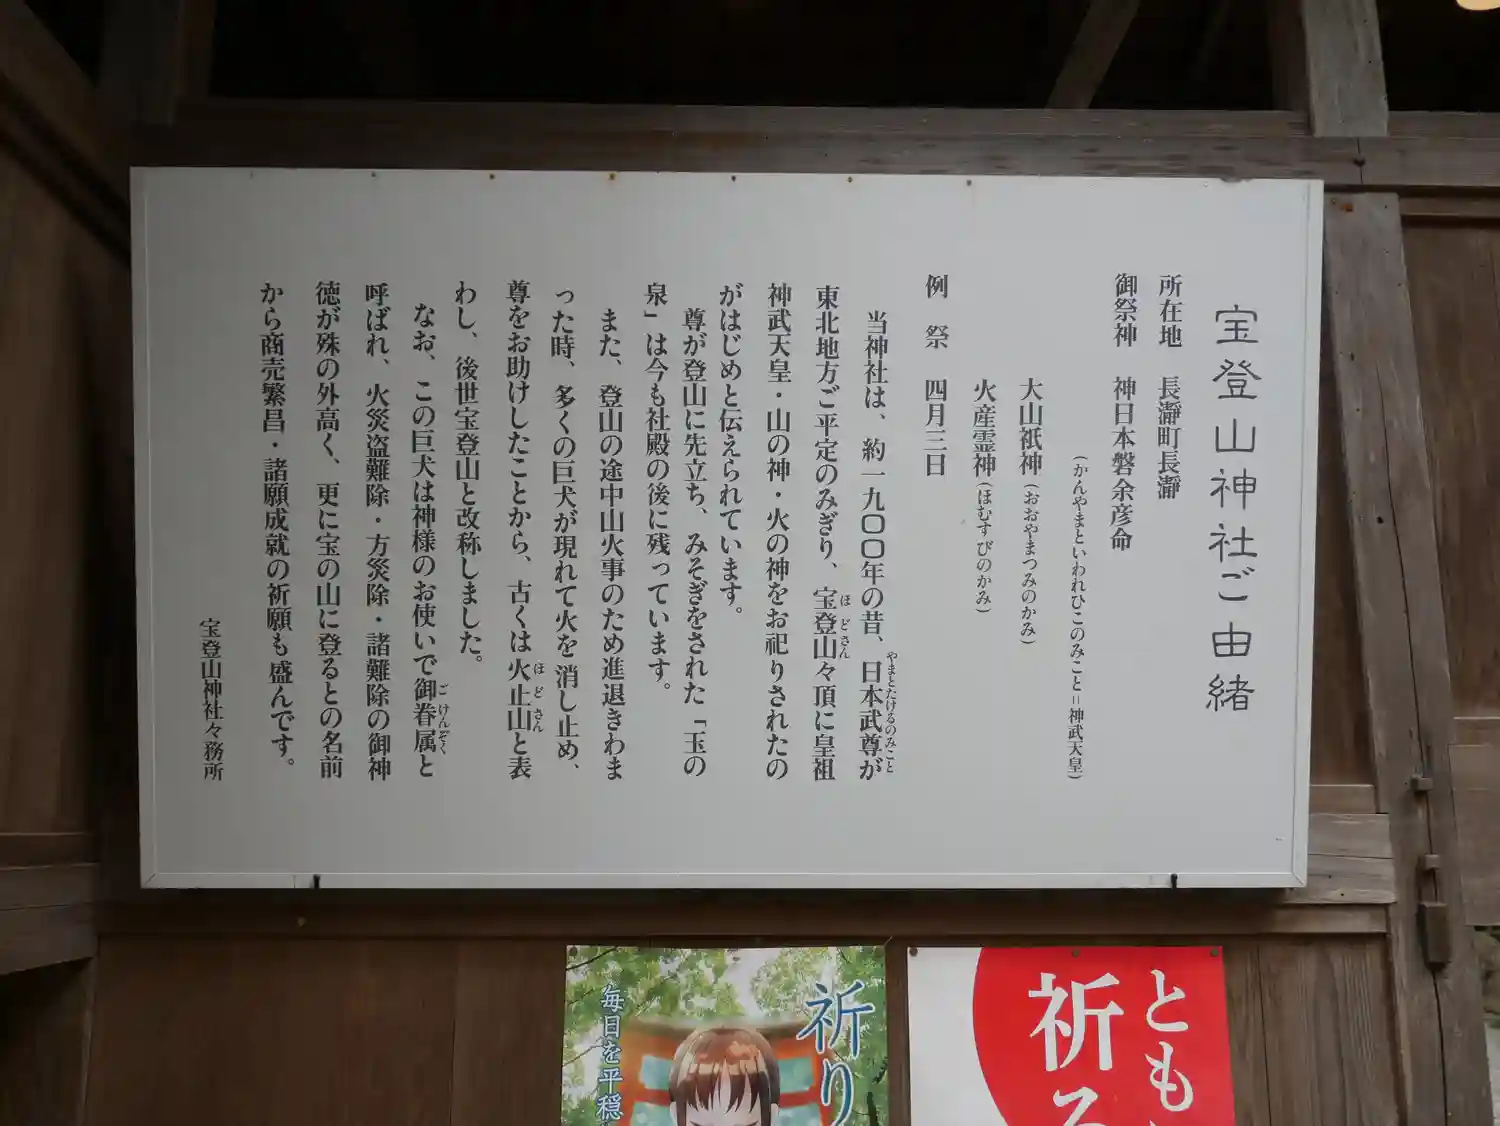 宝登山神社ご由緒
所在地 長瀞町長瀞
御祭神 神日本磐余彦命
(かんやまといわれひこのみこと=神武天皇)
大山祇神(おおやまつみのかみ)
火産霊神(ほむすびのかみ)
例祭 四月三日
当神社は、約一九〇〇年の昔、日本武尊が
やまとたけるのみこと
東北地方ご平定のみぎり、宝登山々頂に皇祖
ほどさん
神武天皇・山の神・火の神をお祀りされたの
がはじめと伝えられています。
尊が登山に先立ち、みそぎをされた「玉の
泉」は今も社殿の後に残っています。
また、登山の途中山火事のため進退きわま
った時、多くの巨犬が現れて火を消し止め、
尊をお助けしたことから、古くは火止山と表
ほどさん
わし、後世宝登山と改称しました。
なお、この巨犬は神様のお使いで御眷属と
ごけんぞく
呼ばれ、火災盗難除・方災除・諸難除の御神
徳が殊の外高く、更に宝の山に登るとの名前
から商売繁昌・諸願成就の祈願も盛んです。
宝登山神社々務所
とも
祈る
祈り
毎日を平穏